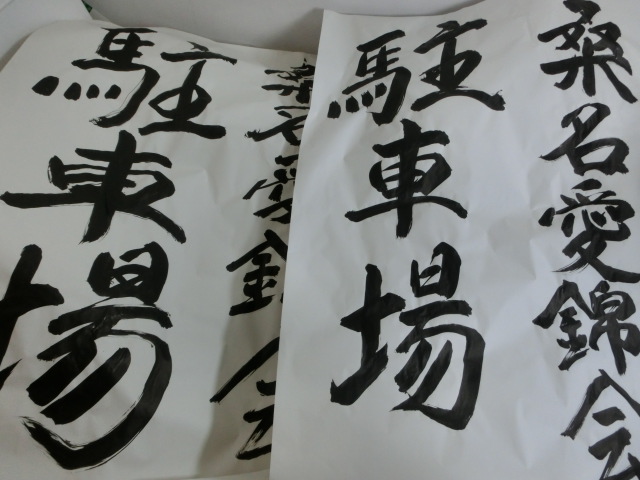 桑名愛錦会
駐車場
桑名愛錦会
駐車場